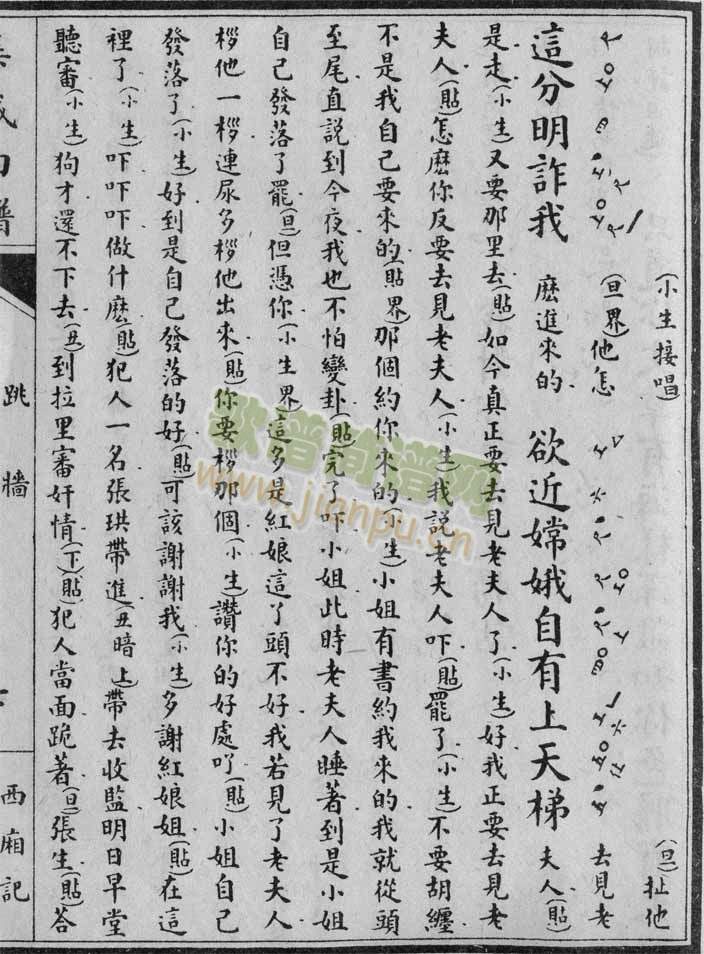 (小生接唱)
(旦)扯他
(旦界)他怎
去見老
這分明詐我
麽進來的
欲近嫦娥自有上天梯
夫人(貼)
是走(小生)又要那里去(貼)如今真正要去見老夫人了(小生)好我正要去見老
夫人(貼)怎麽你反要去見老夫人(小生)我説老夫人吓(貼)罷了(小生)不要胡纏
不是我自己要來的(貼界)那個約你來的(小生)小姐有書約我來的我就從頭
至尾直説到今夜我也不怕變卦(貼)完了吓小姐此時老夫人睡著到是小姐
自己發落了罷(旦)但憑你(小生界)這多是紅娘這丫頭不好我若見了老夫人
桚他一桚連尿多桚他出來(貼)你要桚那個(小生)讚你的好處吖(貼)小姐自己
發落了(小生)好到是自己發落的好(貼)可該謝謝我(小生)多謝紅娘姐(貼)在這
裡了(小生)吓吓吓做什麽(貼)犯人一名張珙帶進(丑暗上)帶去收監明日早堂
聽審(小生)狗才還不下去(丑)到拉里審奸情(下)(貼)犯人當面跪著(旦)張生(貼)荅
集成曲譜
跳牆
西廂記
歌譜簡譜網
www.jianpu.cn